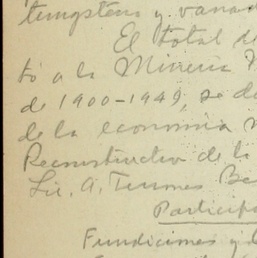 tungsteno y vanad
El total de
to a la Minería
de 1900-1949, se de
de la economía
Reconstructiva de la
Lic. A. Terrones Be
Particip
Fundiciones y